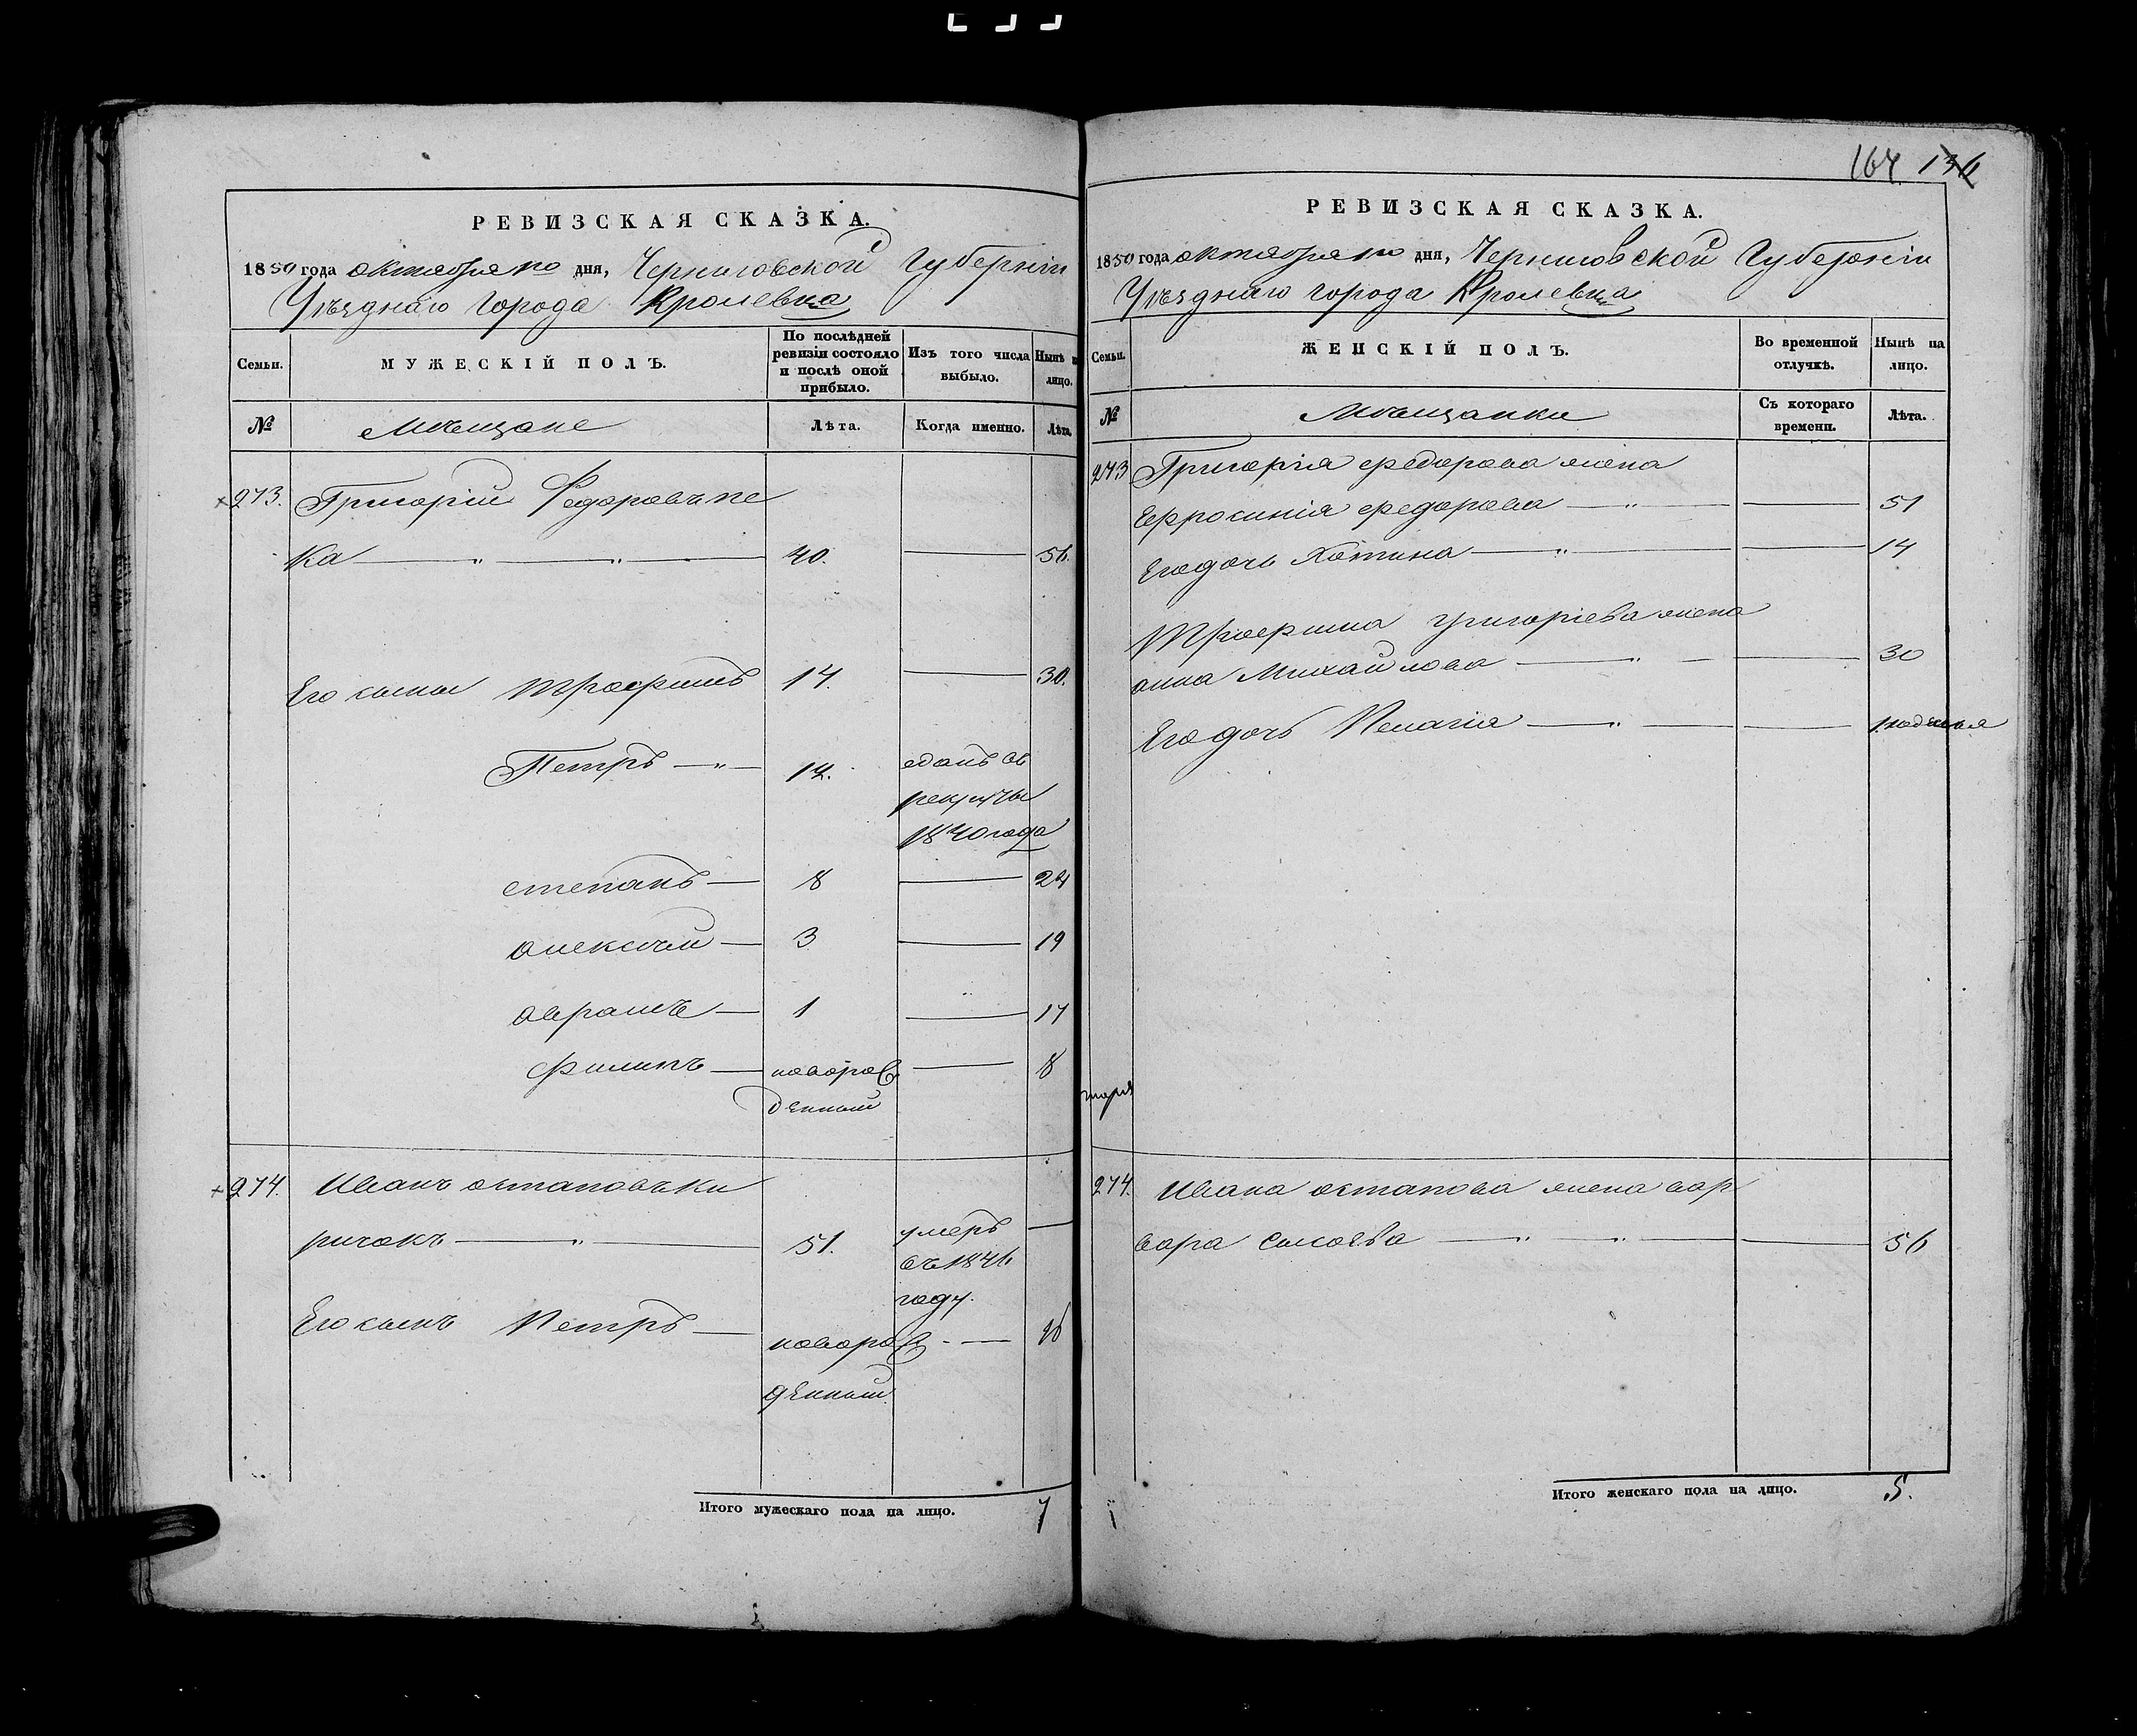 164 136
РЕВИЗСКАЯ СКАЗКА.
1850 года октября дня, Черниговской Губерніи
Уѣзднаго Города Кролевца
Семьи.
МУЖЕСКІЙ ПОЛЪ.
По послѣдней ревизіи состояло и послѣ оной прибыло.
Изъ того числа выбыло.
Нынѣ н лицо.
№
Мѣщане
Лѣта.
Когда именно.
Лѣта.
273. Григорій Федоровъ пе
ка — " — " — 40. — 56.
Его сыны Трофимъ 14. — 30.
Петръ — " — 14. сданъ въ
рекруты
1840 года
степанъ — 8 — 24
алексѣй — 3 — 19
аврамъ — 1 — 17
Филипъ — новорож — 8
денный
274. Иванъ остаповъ ки
ричокъ — " — 51. умеръ —
въ 1846
году.
Его сынъ Петръ — новорож - — 16
денный
Итого мужескаго пола на лицо. 7
РЕВИЗСКАЯ СКАЗКА.
1850 года октября дня, Черниговской Губерніи
Уѣзднаго города Кролевца
Семьи.
ЖЕНСКІЙ ПОЛЪ.
Во временной отлучкѣ.
Нынѣ на лицо.
№
Мѣщанки
Съ котораго времени.
Лѣта.
273 Григорія федорова жена
Ефросинія федорова — " — — 51
Его дочь — " — — 14
Трофима григоріева жена
анна Михайлова — " — — 30
Его дочь Пелагія — " — — 1 годовая
274. Ивана остапова жена вар
вара — " — " — — 56
Итого женскаго пола на лицо. 5.